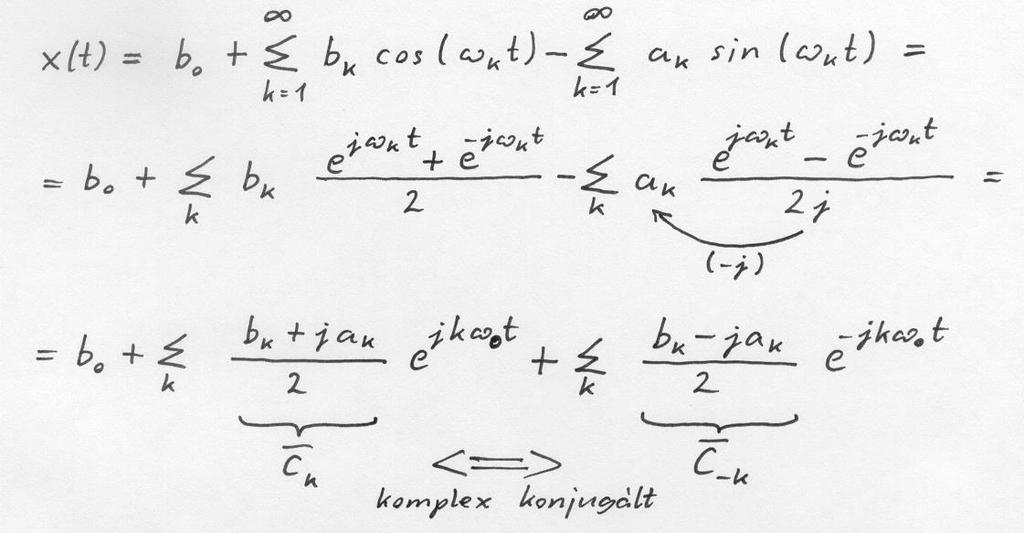 x(t) = b₀ + ∑_{k=1}^{∞} b_k cos(ω_k t) − ∑_{k=1}^{∞} a_k sin(ω_k t) =
= b₀ + ∑_k b_k (e^{jω_k t} + e^{-jω_k t})/2 − ∑_k a_k (e^{jω_k t} − e^{-jω_k t})/2j =
(-j)
= b₀ + ∑_k (b_k + j a_k)/2 e^{jkω₀t} + ∑_k (b_k − j a_k)/2 e^{-jkω₀t}
C̅_k <=> C̅_{-k}
komplex konjugált